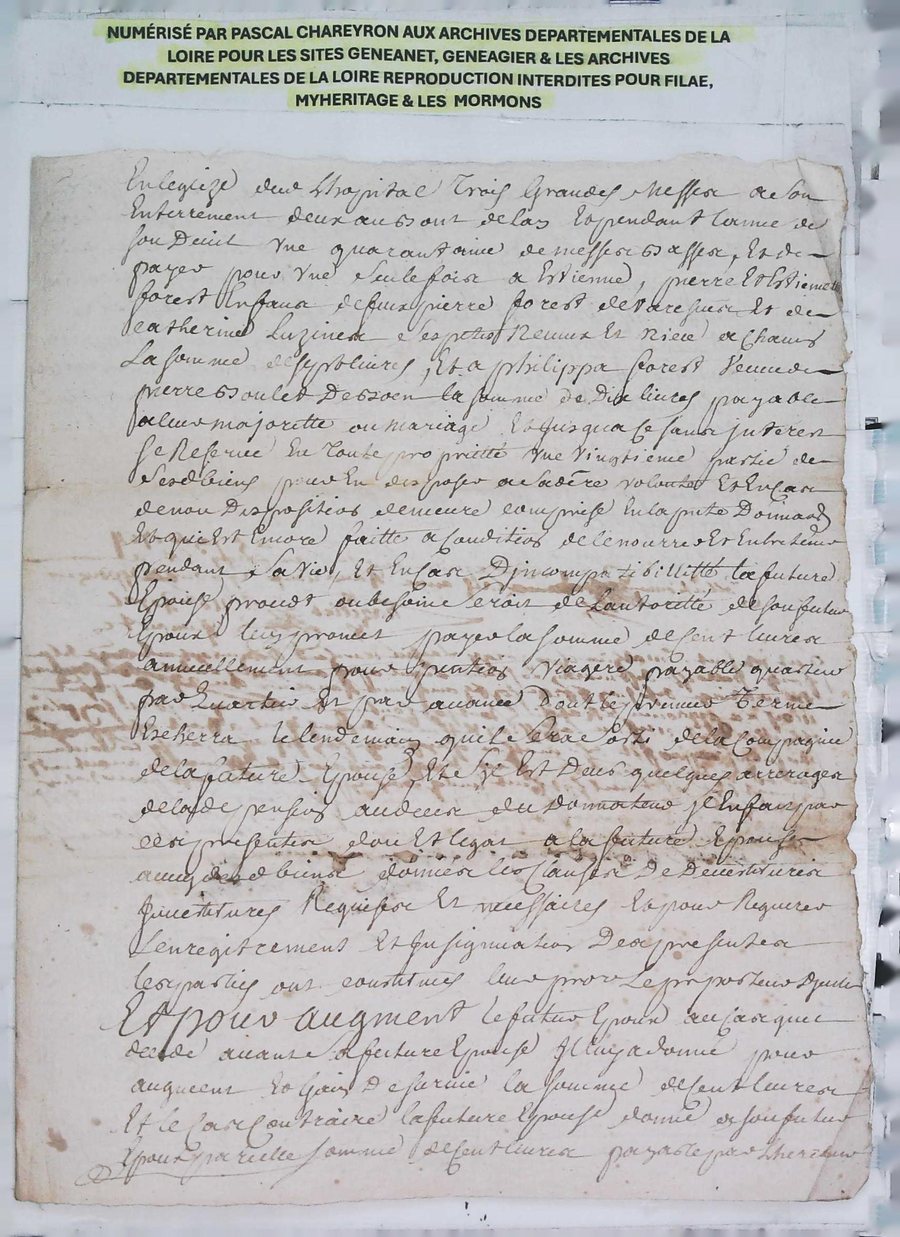 NUMÉRISÉ PAR PASCAL CHAREYRON AUX ARCHIVES DEPARTEMENTALES DE LA
LOIRE POUR LES SITES GENEANET, GENEAGIER & LES ARCHIVES
DEPARTEMENTALES DE LA LOIRE REPRODUCTION INTERDITES POUR FILAE,
MYHERITAGE & LES MORMONS
En leglize dud Lhopital Trois Grandes Messes a son
Enterrement deux au bout de lan Et pendant lanne de
son Deces Une quarantaine de messes basses, Et de
payer pour Une seule fois a Estienne, pierre Et Estiennette
forest Enfans de feu pierre forest de Et de
Catherine ses petits Neveux Et Niece a Chacun
La somme de sept livres, Et a philippa forest Veuve de
pierre la somme de Dix livres payable
a leur majoritte ou mariage Et jusqua ce sans jnterest
se Reserve En toute proprietté Une Vingtieme partie de
sesd biens pour En disposer a sa dere volonté Et En Cas
de non Disposition demeure comprise En la pnte Donnaon
Et qui Est Encore faitte a Condition de le nourrir Et Entretenir
pendant sa Vie, Et En Cas Djncompatibillitté la future
Epouse proced ou besoin seroit de Lautoritté de son futur
Epoux luy promet payer la somme de Cent livres
annuellement pour pention Viagere payable quartier
par Quartier Et par avance dont le premier Terme
Echerra le lendemain quil sera sorti de la Compagnie
de la future Epouse, Et sil Est Deub quelques arrerages
de lade pension au deces du donnateur jl En fait par
ces presentes don Et legat a la future Epouse
biens donnés les Clauses De Devestitures
jnvestitures Requises Et necessaires Et pour Requerir
Lenregitrement Et Jnsignuation Des presentes
les parties ont constitués leur procr Le porteur Dycelles
Et pour augment le futur Epoux au Cas quil
decede avant sa future Epouse Jl luy a donné pour
augment Et Gain De survie la somme de Cent livres
Et le Cas Contraire la future Epouse donne a son futur
Epoux pareille somme de Cent livres payable par Lheritier